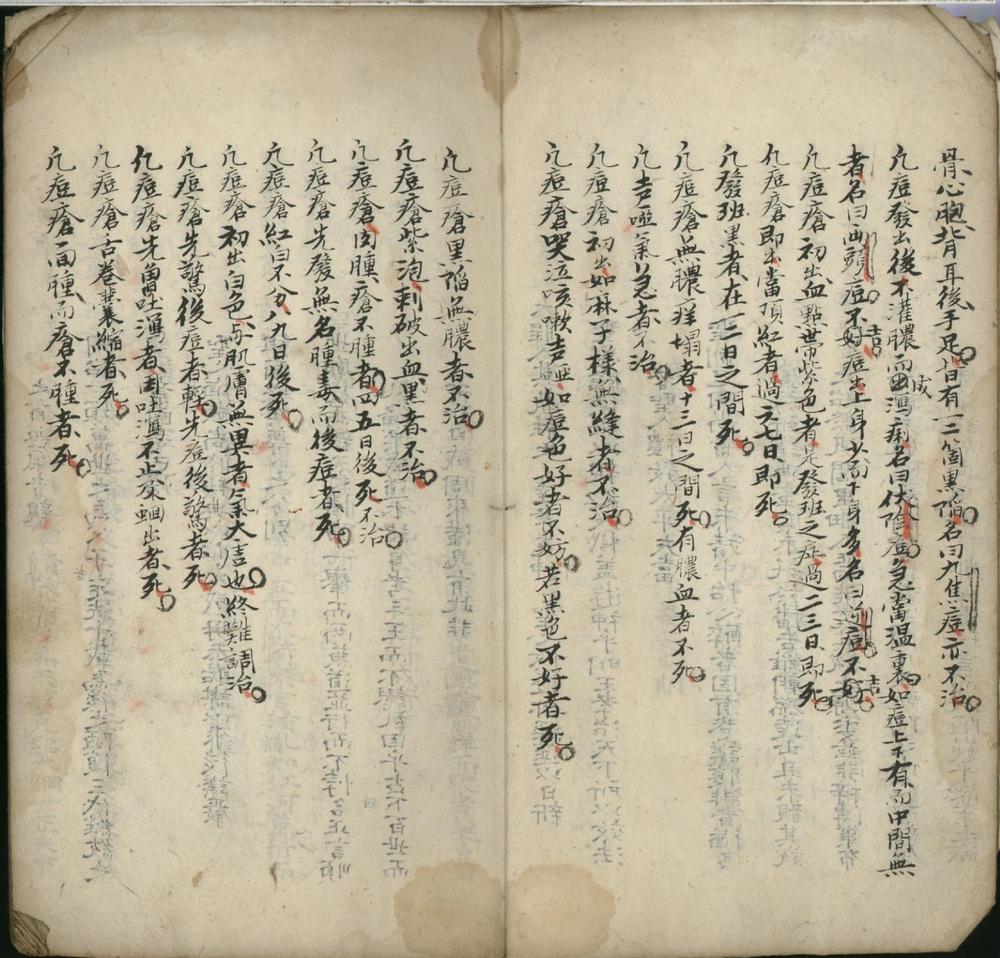 骨心胞背耳後手足皆有一二箇黑陷名曰九焦痘亦不治
凢痘發出後不灌膿而成瀉痢名曰伏陰痘急當温裏如痘上下有而中間無
者名曰兩頭痘不好吉痘出上身少而下身多名曰逆痘不好吉
凢痘瘡初出血點世帶紫色者是發班之症過二三日即死
凢痘瘡即出當頂紅者過六七日即死
凢發班黑者在一二日之間死
凢痘瘡無膿痒塌者十三日之間死有膿血者不死
凢声啞氣急者不治
凢痘瘡初出如麻子樣無縫者不治
凢痘瘡哭泣咳嗽声啞如痘色好者不妨若黑色不好者死
凢痘瘡黑陷無膿者不治
凢痘瘡紫泡刺破出血黑者不治
凢痘瘡肉腫瘡不腫者四五日後死不治
凢痘瘡先發無名腫毒而後痘者死
凢痘瘡紅白不分八九日後死
凢痘瘡初出白色与肌膚無異者氣大虗也終難調治
凢痘瘡先驚後痘者輕先痘後驚者死
凢痘瘡先當吐瀉者因吐瀉不止屎蛔出者死
凢痘瘡舌卷囊縮者死
凢痘瘡面腫而瘡不腫者死